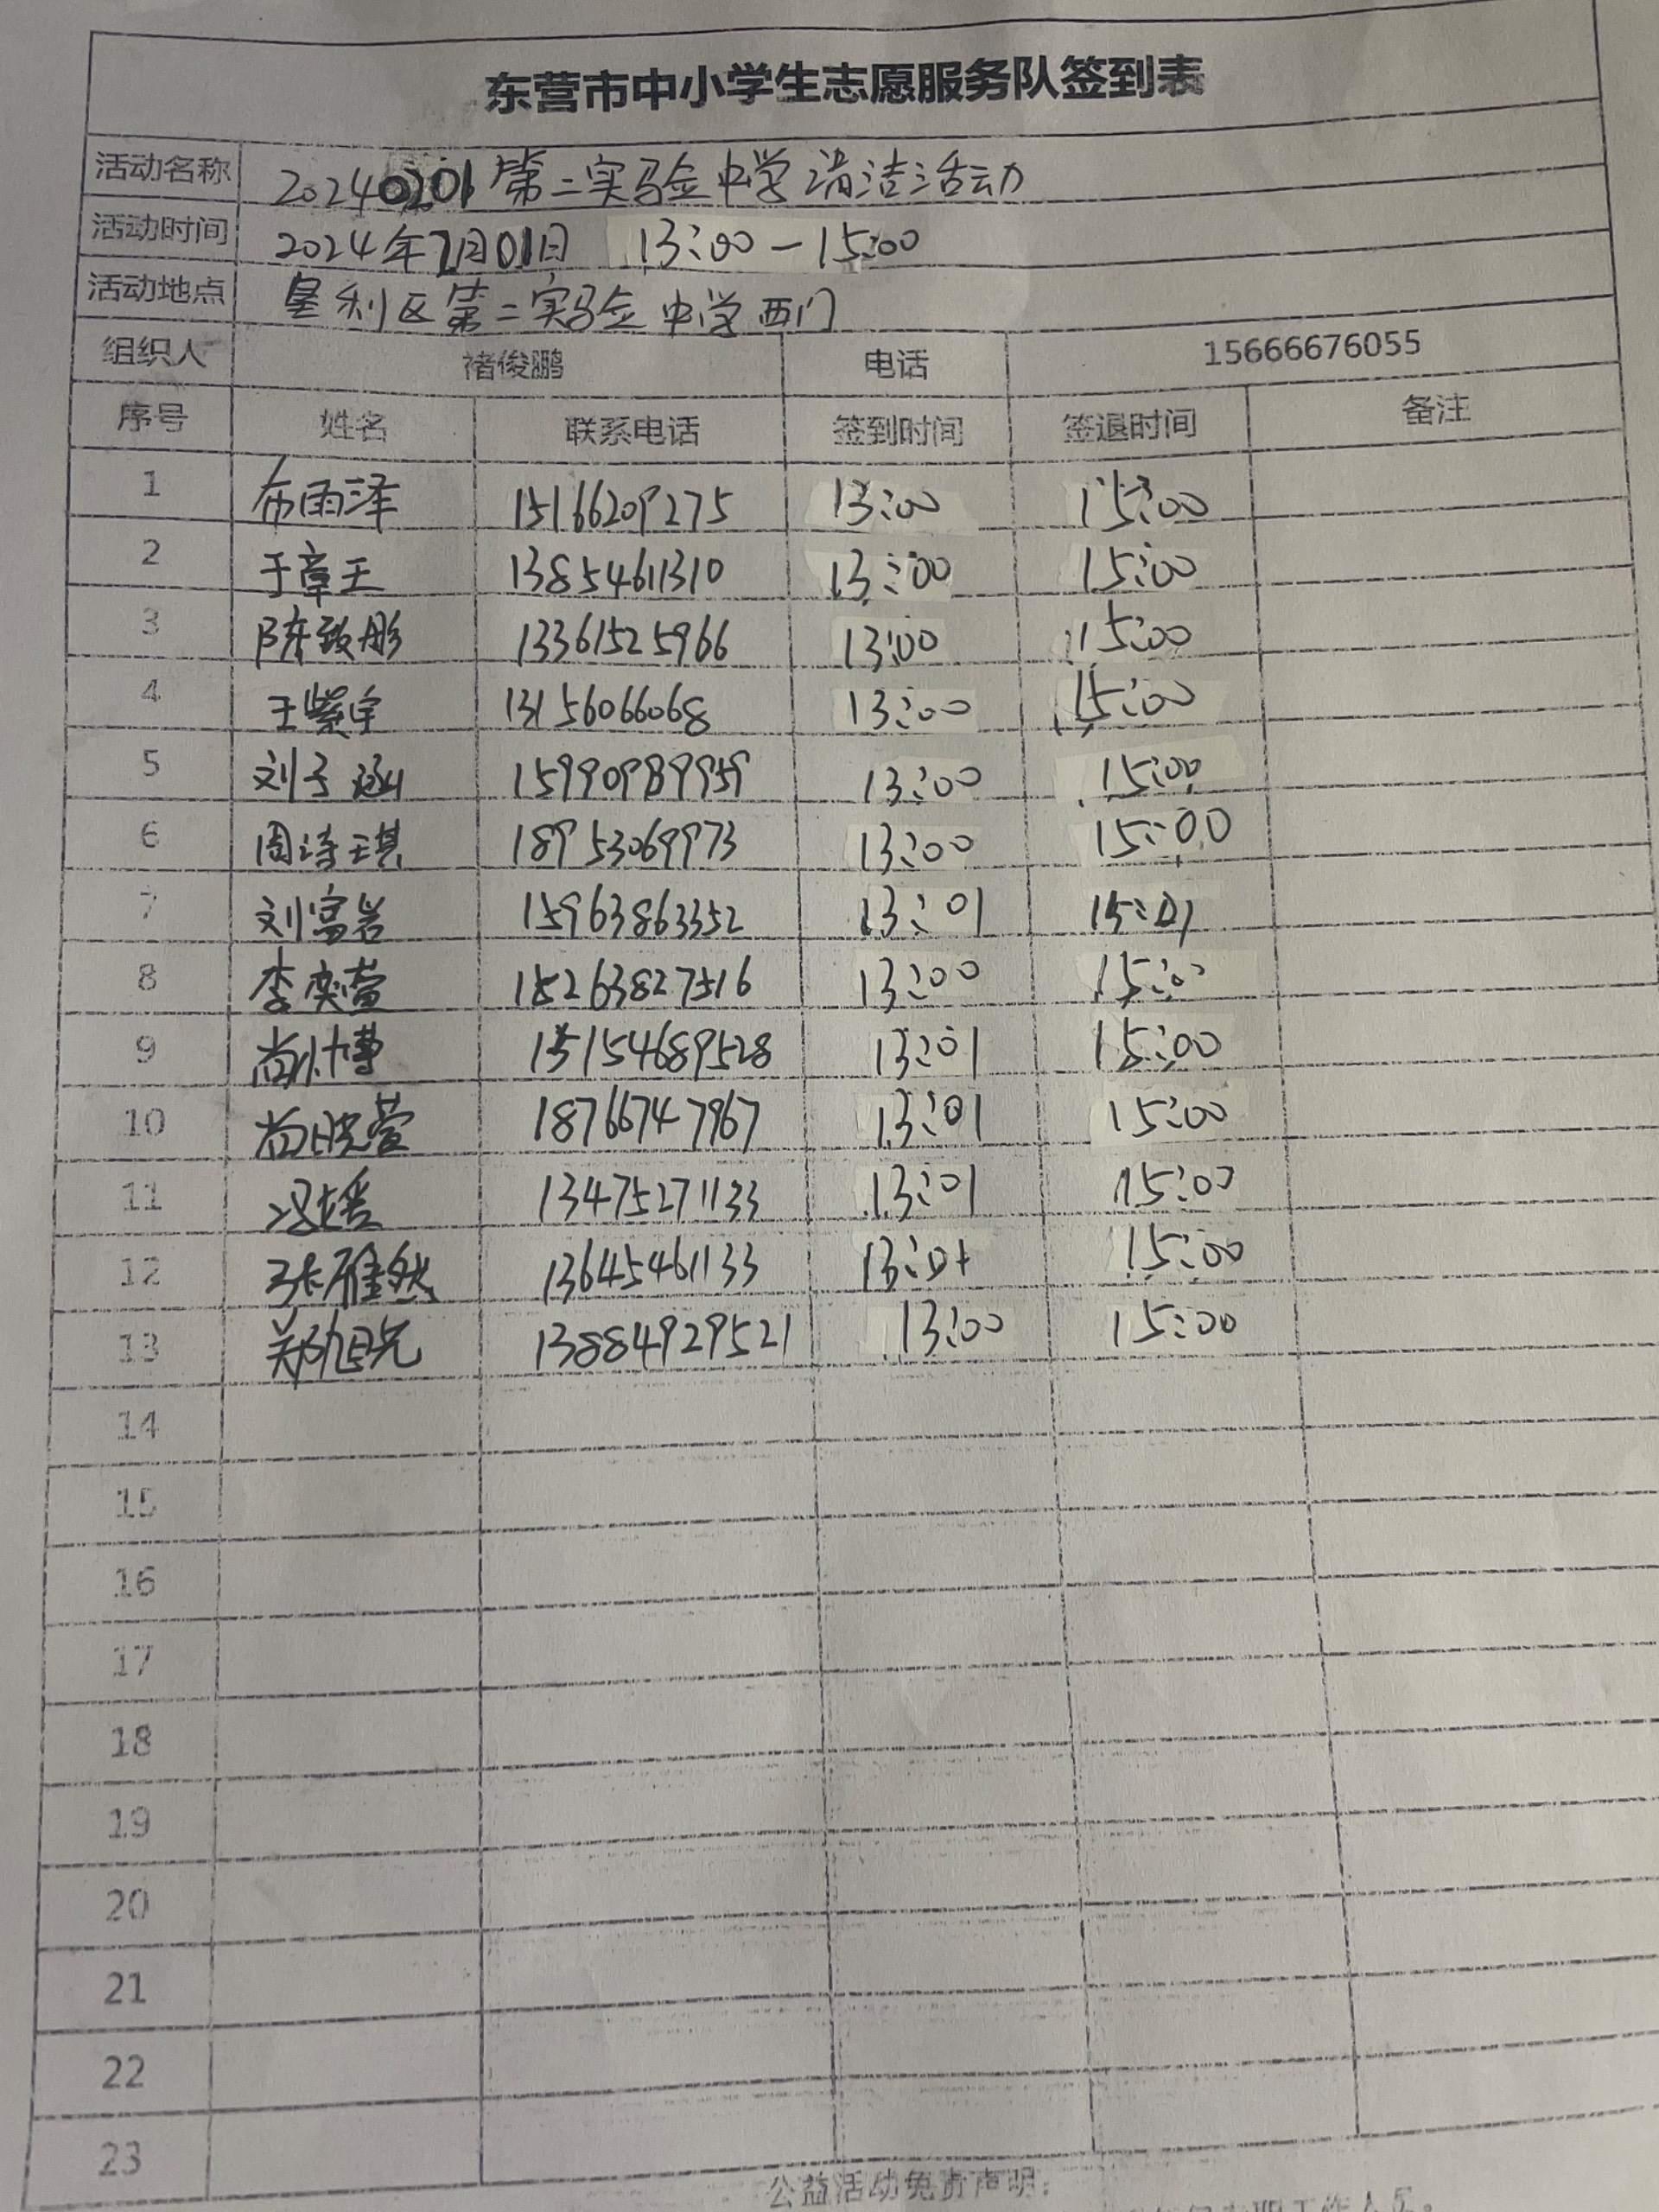 东营市中小学生志愿服务队签到表
活动名称 20240201第二实验中学清洁活动
活动时间 2024年2月01日 13:00-15:00
活动地点 垦利区第二实验中学西门
组织人 褚俊鹏 电话 15666676055
序号 姓名 联系电话 签到时间 签退时间 备注
1 布雨泽 15166209275 13:00 15:00
2 于章王 13854611310 13:00 15:00
3 陈致彤 13361525966 13:00 15:00
4 王紫宇 13156066068 13:00 15:00
5 刘子涵 13:00 15:00
6 周诗琪 18953069973 13:00 15:00
7 刘富岩 15963863352 13:01 15:01
8 李奕萱 15263827516 13:00 15:00
9 尚 博 13:01 15:00
10 尚晓萱 18766747967 13:01 15:00
11 冯媛 13475271133 13:01 15:00
12 张雅然 13645461133 13:01 15:00
13 郑旭光 13884929521 13:00 15:00
14
15
16
17
18
19
20
21
22
23
公益活动免责声明:
职工作人员。